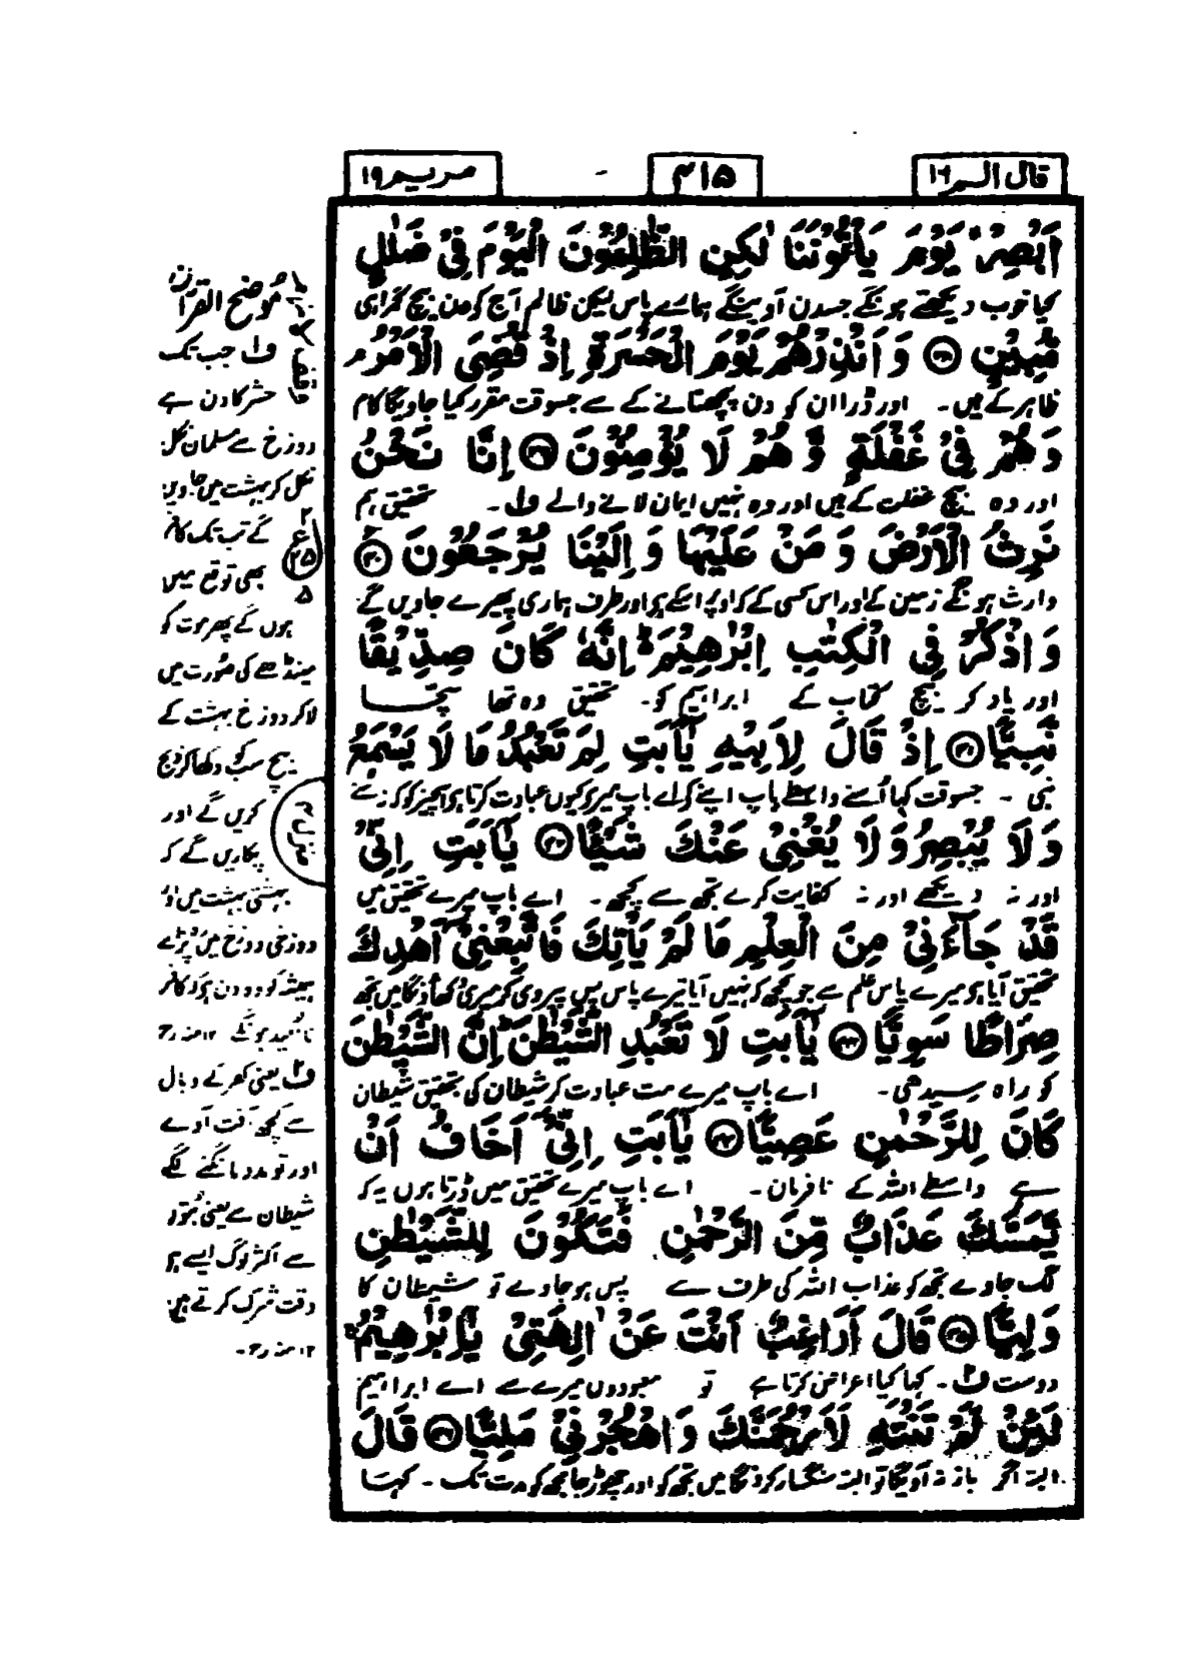 قال الم ١٦
٤١٥
مريم ١٩
اَبْصِرْ ۙ يَوْمَ يَاْتُوْنَنَا لٰكِنِ الظّٰلِمُوْنَ الْيَوْمَ فِيْ ضَلٰلٍ
کیا خوب دیکھتے ہونگے جسدن آوینگے ہمارے پاس لیکن ظالم آج کو دن بیچ گمراہی
مُّبِيْنٍ ﴿۳۸﴾ وَ اَنْذِرْهُمْ يَوْمَ الْحَسْرَةِ اِذْ قُضِيَ الْاَمْرُ ۘ
ظاہر کے ہیں۔ اور ڈرا ان کو دن پچھتانے کے سے جسوقت مقرر کیا جاویگا کام
وَ هُمْ فِيْ غَفْلَةٍ وَّ هُمْ لَا يُؤْمِنُوْنَ ﴿۳۹﴾ اِنَّا نَحْنُ
اور وہ بیچ غفلت کے ہیں اور وہ نہیں ایمان لانے والے ف۱۔ تحقیق ہم
نَرِثُ الْاَرْضَ وَ مَنْ عَلَيْهَا وَ اِلَيْنَا يُرْجَعُوْنَ ﴿۴۰﴾
وارث ہونگے زمین کے اور اس کسی کے کہ اوپر اسکے ہے اور طرف ہماری پھیرے جاویں گے
وَ اذْكُرْ فِي الْكِتٰبِ اِبْرٰهِيْمَ ؕ اِنَّهٗ كَانَ صِدِّيْقًا
اور یاد کر بیچ کتاب کے ابراہیم کو۔ تحقیق وہ تھا سچا
نَّبِيًّا ﴿۴۱﴾ اِذْ قَالَ لِاَبِيْهِ يٰۤاَبَتِ لِمَ تَعْبُدُ مَا لَا يَسْمَعُ
نبی ۔ جسوقت کہا اُسنے واسطے باپ اپنے کے اے باپ میرے کیوں عبادت کرتا ہے اسچیز کو کہ نہ سنے
وَ لَا يُبْصِرُ وَ لَا يُغْنِيْ عَنْكَ شَيْـًٔا ﴿۴۲﴾ يٰۤاَبَتِ اِنِّيْ
اور نہ دیکھے اور نہ کفایت کرے تجھ سے کچھ۔ اے باپ میرے تحقیق میں
قَدْ جَآءَنِيْ مِنَ الْعِلْمِ مَا لَمْ يَاْتِكَ فَاتَّبِعْنِيْۤ اَهْدِكَ
تحقیق آیا ہے میرے پاس علم سے جو کچھ کہ نہیں آیا تیرے پاس پس پیروی کر میری دکھاؤنگا میں تجھ
صِرَاطًا سَوِيًّا ﴿۴۳﴾ يٰۤاَبَتِ لَا تَعْبُدِ الشَّيْطٰنَ ؕ اِنَّ الشَّيْطٰنَ
کو راہ سیدھی۔ اے باپ میرے مت عبادت کر شیطان کی تحقیق شیطان
كَانَ لِلرَّحْمٰنِ عَصِيًّا ﴿۴۴﴾ يٰۤاَبَتِ اِنِّيْۤ اَخَافُ اَنْ
ہے واسطے اللہ کے نافرمان۔ اے باپ میرے تحقیق میں ڈرتا ہوں یہ کہ
يَّمَسَّكَ عَذَابٌ مِّنَ الرَّحْمٰنِ فَتَكُوْنَ لِلشَّيْطٰنِ
لگ جاوے تجھ کو عذاب اللہ کی طرف سے پس ہو جاوے تو شیطان کا
وَلِيًّا ﴿۴۵﴾ قَالَ اَرَاغِبٌ اَنْتَ عَنْ اٰلِهَتِيْ يٰۤاِبْرٰهِيْمُ ۚ
دوست ف۲۔ کہا کیا اعراض کرتا ہے تو معبودوں میرے سے اے ابراہیم
لَئِنْ لَّمْ تَنْتَهِ لَاَرْجُمَنَّكَ وَ اهْجُرْنِيْ مَلِيًّا ﴿۴۶﴾ قَالَ
البتہ اگر باز نہ آویگا تو البتہ سنگسار کرونگا میں تجھ کو اور چھوڑ جا مجھ کو مدت تک ۔ کہا
موضح القرآن
ف۱ جب تک
حشر کا دن ہے
دوزخ سے مسلمان نکل
نکل کر بہشت میں جاویں
گے تب تک کافر
بھی توقع میں
ہوں گے پھر موت کو
مینڈھے کی صورت میں
لاکر دوزخ بہشت کے
بیچ سب کو دکھا کر ذبح
کریں گے اور
پکاریں گے کہ
بہشتی بہشت میں اور
دوزخی دوزخ میں پڑے
ہمیشہ کو وہ دن ہے کہ کافر
ناامید ہونگے ۱۲ منہ رح
ف۲ یعنی کفر کے وبال
سے کچھ آفت آوے
اور تو مدد مانگنے لگے
شیطان سے یعنی بتوں
سے اکثر لوگ ایسے ہی
وقت شرک کرتے ہیں
۱۲ منہ رح۔
ع
۲۵
۵